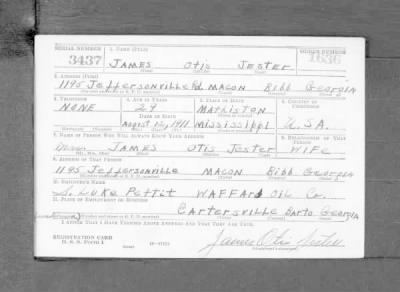 SERIAL NUMBER 1. NAME (Print) ORDER NUMBER
3437 JAMES Otis Jester 1636
(First) (Middle) (Last)
2. ADDRESS (Print)
1195 Jeffersonville Rd. MACON Bibb Georgia
3. TELEPHONE 4. AGE IN YEARS 5. PLACE OF BIRTH 6. COUNTRY OF CITIZENSHIP
NONE 29 Mathiston
DATE OF BIRTH
August 12, 1911 Mississippi U.S.A.
7. NAME OF PERSON WHO WILL ALWAYS KNOW YOUR ADDRESS 8. RELATIONSHIP OF THAT PERSON
Mrs. JAMES Otis Jester WIFE
9. ADDRESS OF THAT PERSON
1195 Jeffersonville MACON Bibb Georgia
10. EMPLOYER'S NAME
S. Luke Pettit WAFFARD OIL Co.
11. PLACE OF EMPLOYMENT OR BUSINESS
Cartersville Barto Georgia
I AFFIRM THAT I HAVE VERIFIED ABOVE ANSWERS AND THAT THEY ARE TRUE.
REGISTRATION CARD
D. S. S. FORM 1
James Otis Jester